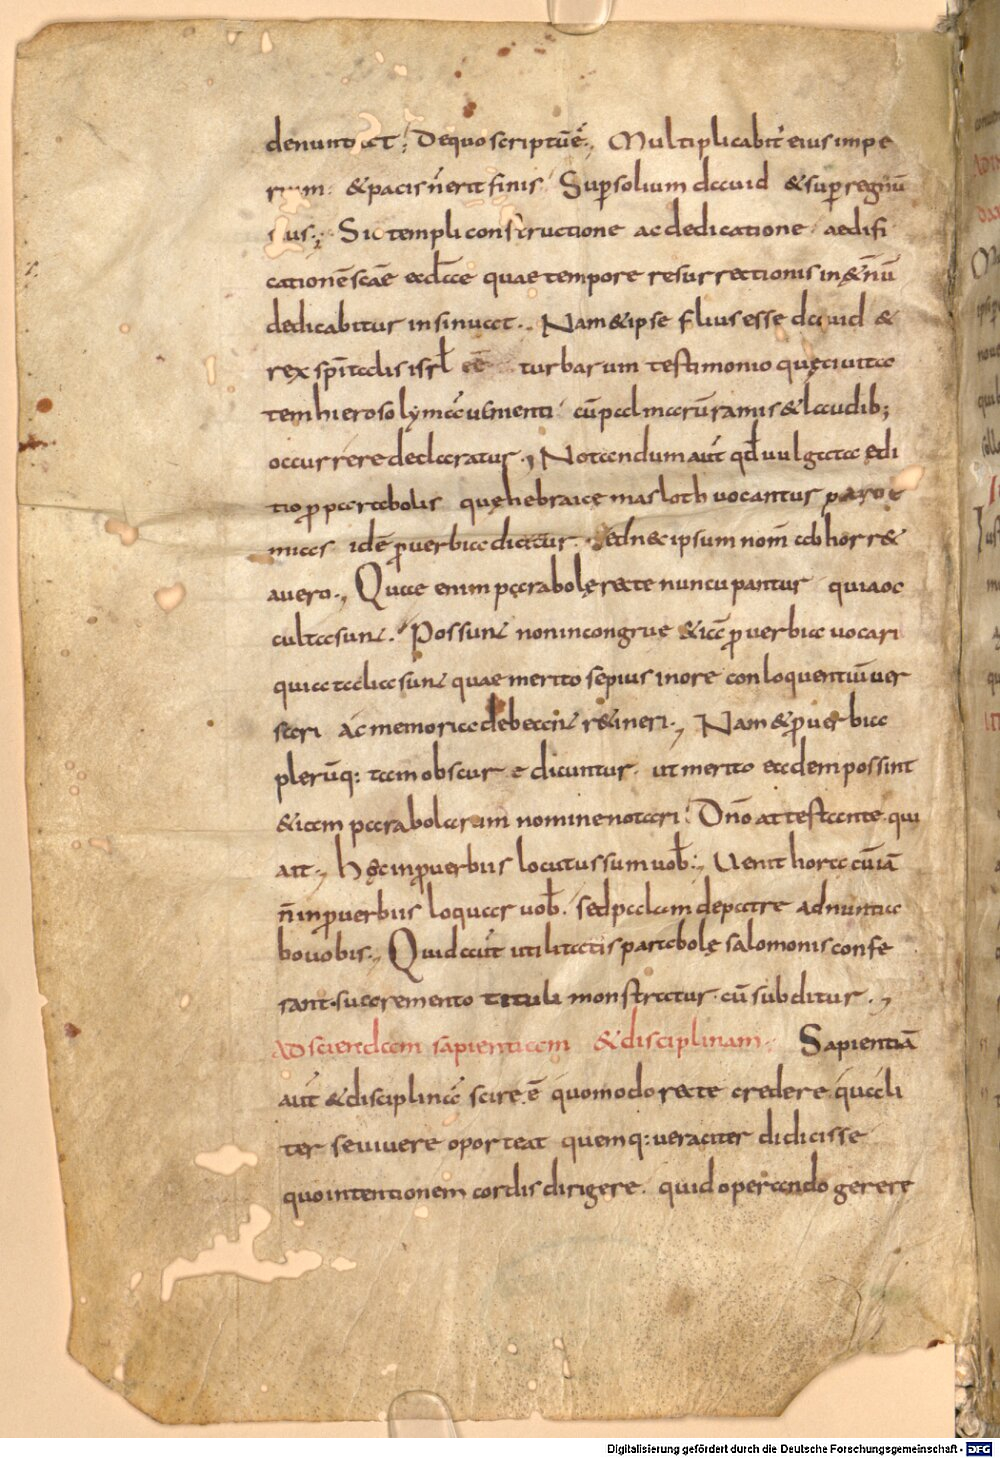 denuntiat; De quo scriptū ē., Multiplicabit᷑ eius impe
rium. & pacis n̄ erit finis. Sup̲ solium dauid & sup̲ regnū
eius., Sic templi constructione ac dedicatione aedifi
cationē scāe ecc̄lae quae tempore resurrectionis in&nū
dedicabitur insinuat. Nam & ipse filius esse dauid &
rex sp̄italis isr̄l turbarum testimonio quę ciuita
tem hierosolymā uementi cū palmarū ramis & laudib;
occurrere declaratur., Notandum aūt qd̄ uulgata edi
tio p̱ parabolis quę hebraicę masloth uocantur paroe
mias idē p̱uerbia dicitur. Sed nec ipsum nom̄ ab horr&
a uero., Quae enim parabolę recte nuncupantur quia oc
cultae sunt. Possunt non incongrue &iā p̱uerbia uocari
quia talia sunt quae merito sepius in ore conloquentiū uer
sari ac memoria debeant r&ineri., Nam & p̱uerbia
plerūq: tam obscure dicuntur. ut merito eadem possint
&iam parabolarum nomine notari. Dn̄o attestante qui
ait., hęc in p̱uerbiis locutus sum uob̄:, Uenit hora cū iā
n̄ in p̱uerbiis loquar uob̄. sed palam de patre adnuntia
bo uobis., Quid aūt utilitatis parabolę salomonis confe
rant. suo cremento tituli monstratur. cū subditur.,
Ad sciendam sapientiam & disciplinam. Sapientiā
aūt & disciplinā scire ē quomodo recte credere. quali
ter se uiuere oporteat quemq: ueraciter didicisse
quo intentionem cordis dirigere. quid operando gerere
Digitalisierung gefördert durch die Deutsche Forschungsgemeinschaft - DFG